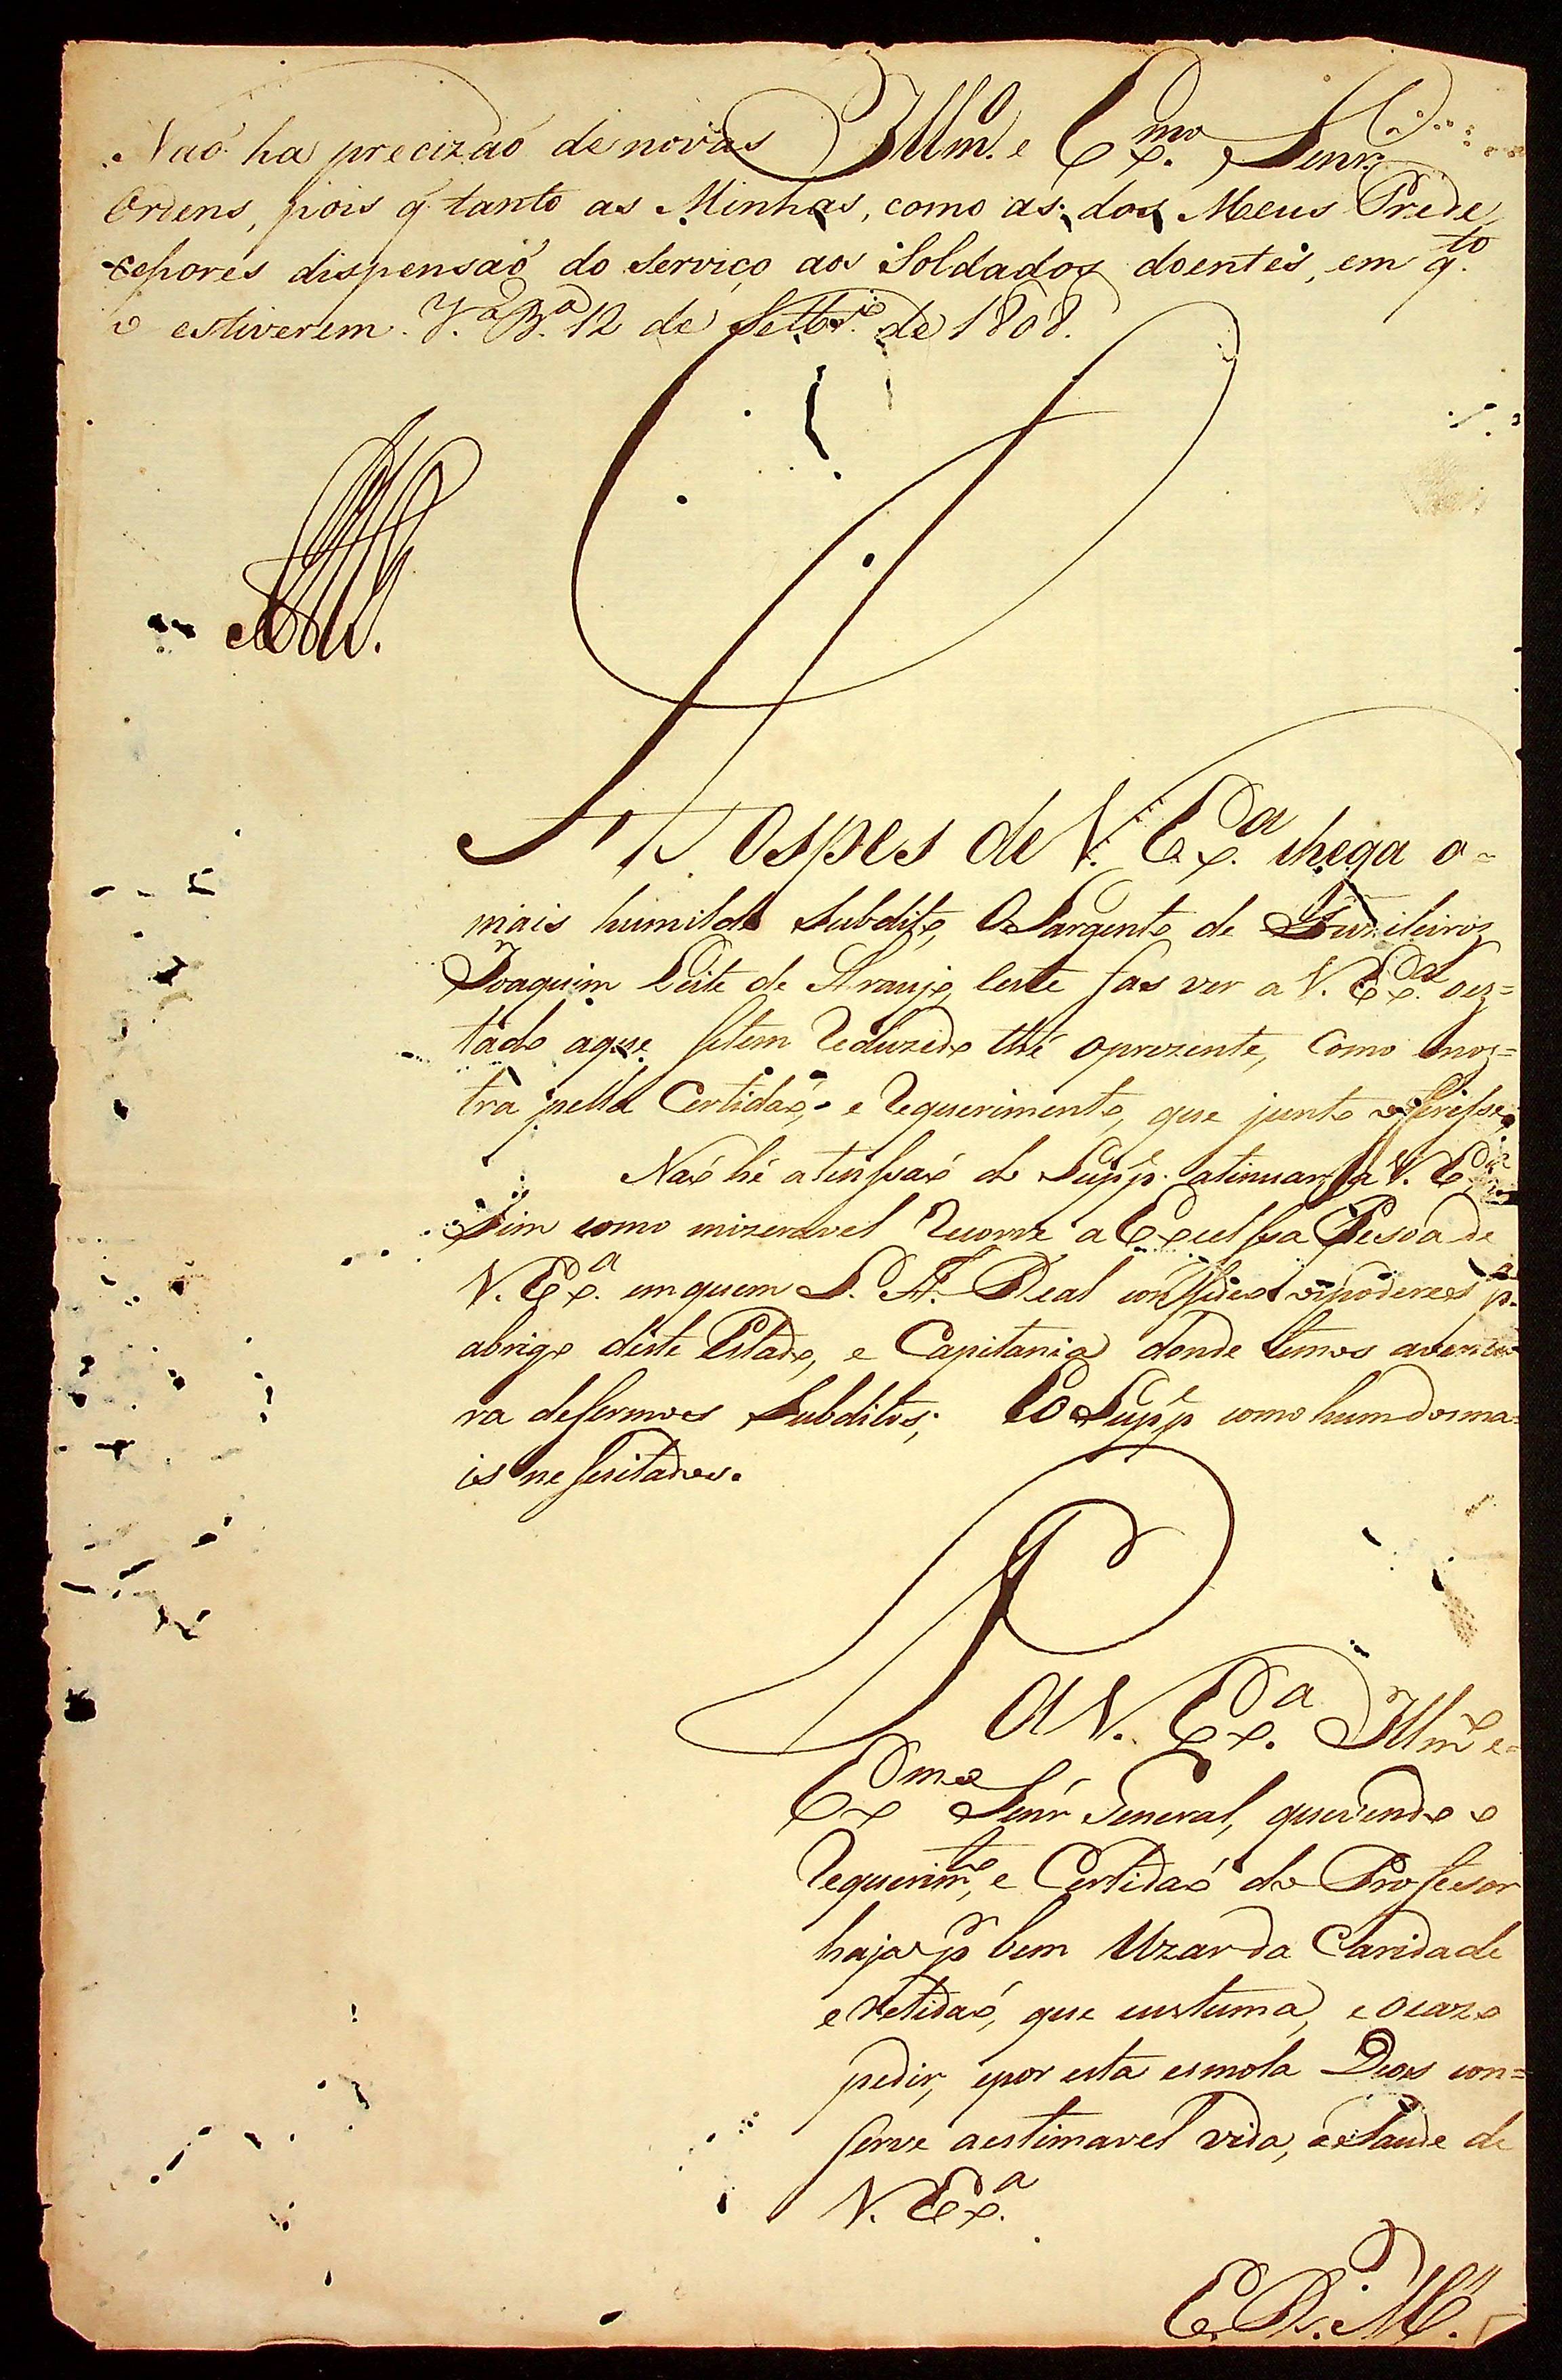 Naõ ha precizaõ de novas Illm.º e Ex.mo Senr.
Ordens, pois q tanto as Minhas, como as dos Meus Prede
cessores dispensaõ do serviço aos Soldados doentes, em q.to
o estiverem. V.ª B.ª 12 de Setbr.º de 1808.
Aos pes de V. Ex.ª chega o-
mais humilde Subdito, O Sargento de Fuzileiros
Joaquim Leite de Araujo, este fas ver a V. Ex.ª oez=
tado aque setem Reduzido thé oprezente, como moz=
tra pella Certidaõ, e Requerimento, que junto oferesse,
Naõ hé atensaõ do Supp.e V. Ex.ª
Sim como mizeravel Recorre a Excelssa Pesoa de
V. Ex.ª emquem S. A. Real os poderes p.ª
abrigo deste Estado, e Capitania donde temos aventu
ra desermos Subditos; Eo Supp.e como hum dosma=
is nesesitados.
P A V. Ex.ª Illm.º e=
Ex.mo Senr General, quevendo o
Requerim.to, e Certidaõ do Profesor
haja p.r bem Uzar da Caridade
e Retidaõ, que custuma, e ocazo
pedir, epor esta esmola Deos con=
serve aestimavel vida, e Saude de
V. Ex.ª
E. R. M.